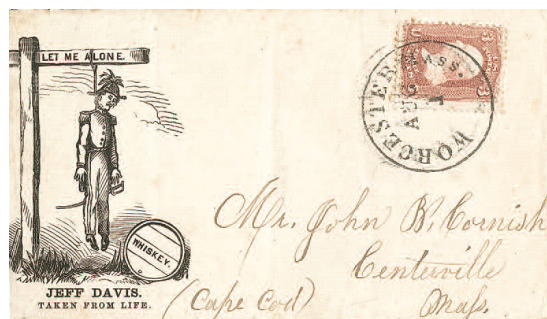 LET ME ALONE.
WHISKEY.
JEFF DAVIS.
TAKEN FROM LIFE.
WORCESTER MASS.
AUG
1
U
3
3
Mr. John B. Cornish
Centerville
(Cape Cod) Mass.